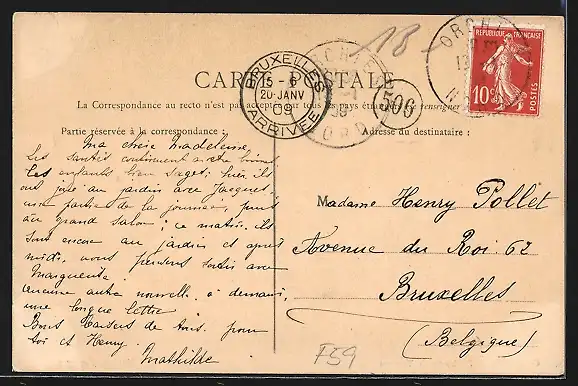 ORCHIES
18
REPUBLIQUE FRANÇAISE
10c
POSTES
CARTE POSTALE
BRUXELLES
15-6
20 JANV
09
ARRIVÉE
506
La Correspondance au recto n'est pas acceptée par tous les pays étrangers (se renseigner
Partie réservée à la correspondance :
Adresse du destinataire :
Ma chère Madeleine,
Les santés continuent à être bonnes
les enfants bien sages; hier ils
ont joué au jardin avec Jacques,
une partie de la journée, puis
au grand salon; ce matin, ils
sont encore au jardin et après
midi, nous pensons sortir avec
Marguerite.
Aucune autre nouvelle. à demain,
une longue lettre.
Bons baisers de tous. pour
toi et Henry.
Mathilde
Madame Henry Pollet
Avenue du Roi 62
Bruxelles
(Belgique)
F59